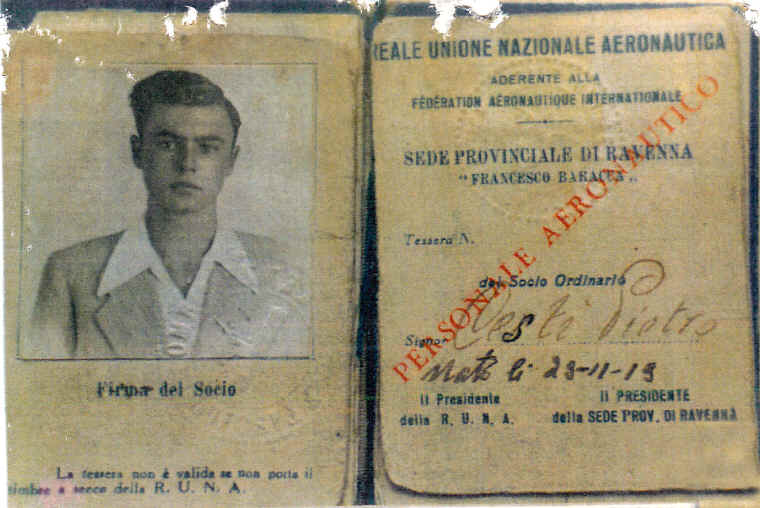 Firma del Socio
La tessera non è valida se non porta il
timbro a secco della R. U. N. A.
REALE UNIONE NAZIONALE AERONAUTICA
ADERENTE ALLA
FÉDÉRATION AÉRONAUTIQUE INTERNATIONALE
SEDE PROVINCIALE DI RAVENNA
"FRANCESCO BARACCA"
PERSONALE AERONAUTICO
Tessera N.
del Socio Ordinario
Signor Vesti Pietro
Nato li 23-11-19
Il Presidente
della R. U. N. A.
Il PRESIDENTE
della SEDE PROV. DI RAVENNA